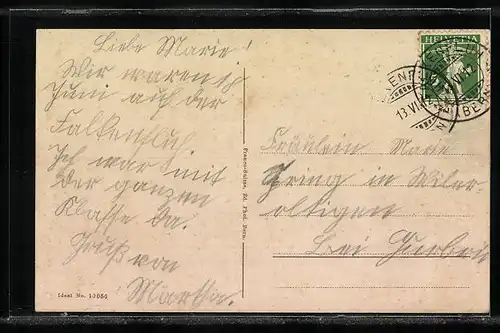 Liebe Marie!
Wir waren
Juni auf der
Falkenfluh.
Ich war mit
der ganzen
Klasse da.
Gruß von
Martha.
Ideal No. 13054
Franco-Suisse, Ed. Phot. Bern.
HELVETIA
13.VI.
BERN
Fräulein Marie
in Wiler-
oltigen
Bei